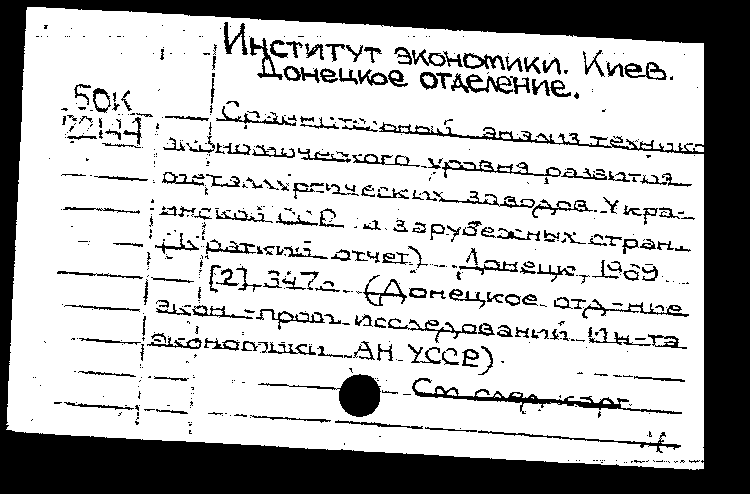 Институт экономики. Киев.
Донецкое отделение.
50К
22144
Сравнительный анализ технико
экономического уровня развития
металлургических заводов Укра-
инской ССР и зарубежных стран.
(Краткий отчет) Донецк, 1969
[2], 347 л. (Донецкое отд-ние
экон.-пром. исследований Ин-та
экономики АН УССР)
См след. карт